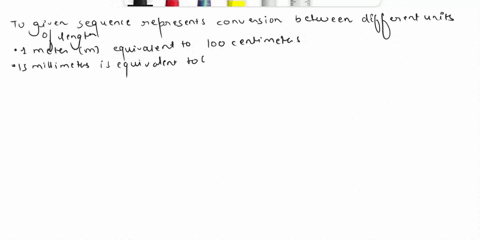 To given sequence represents conversion between different units
of length
• 1 meter (m) equivalent to 100 centimeters
• 15 millimeter is equivalent to(